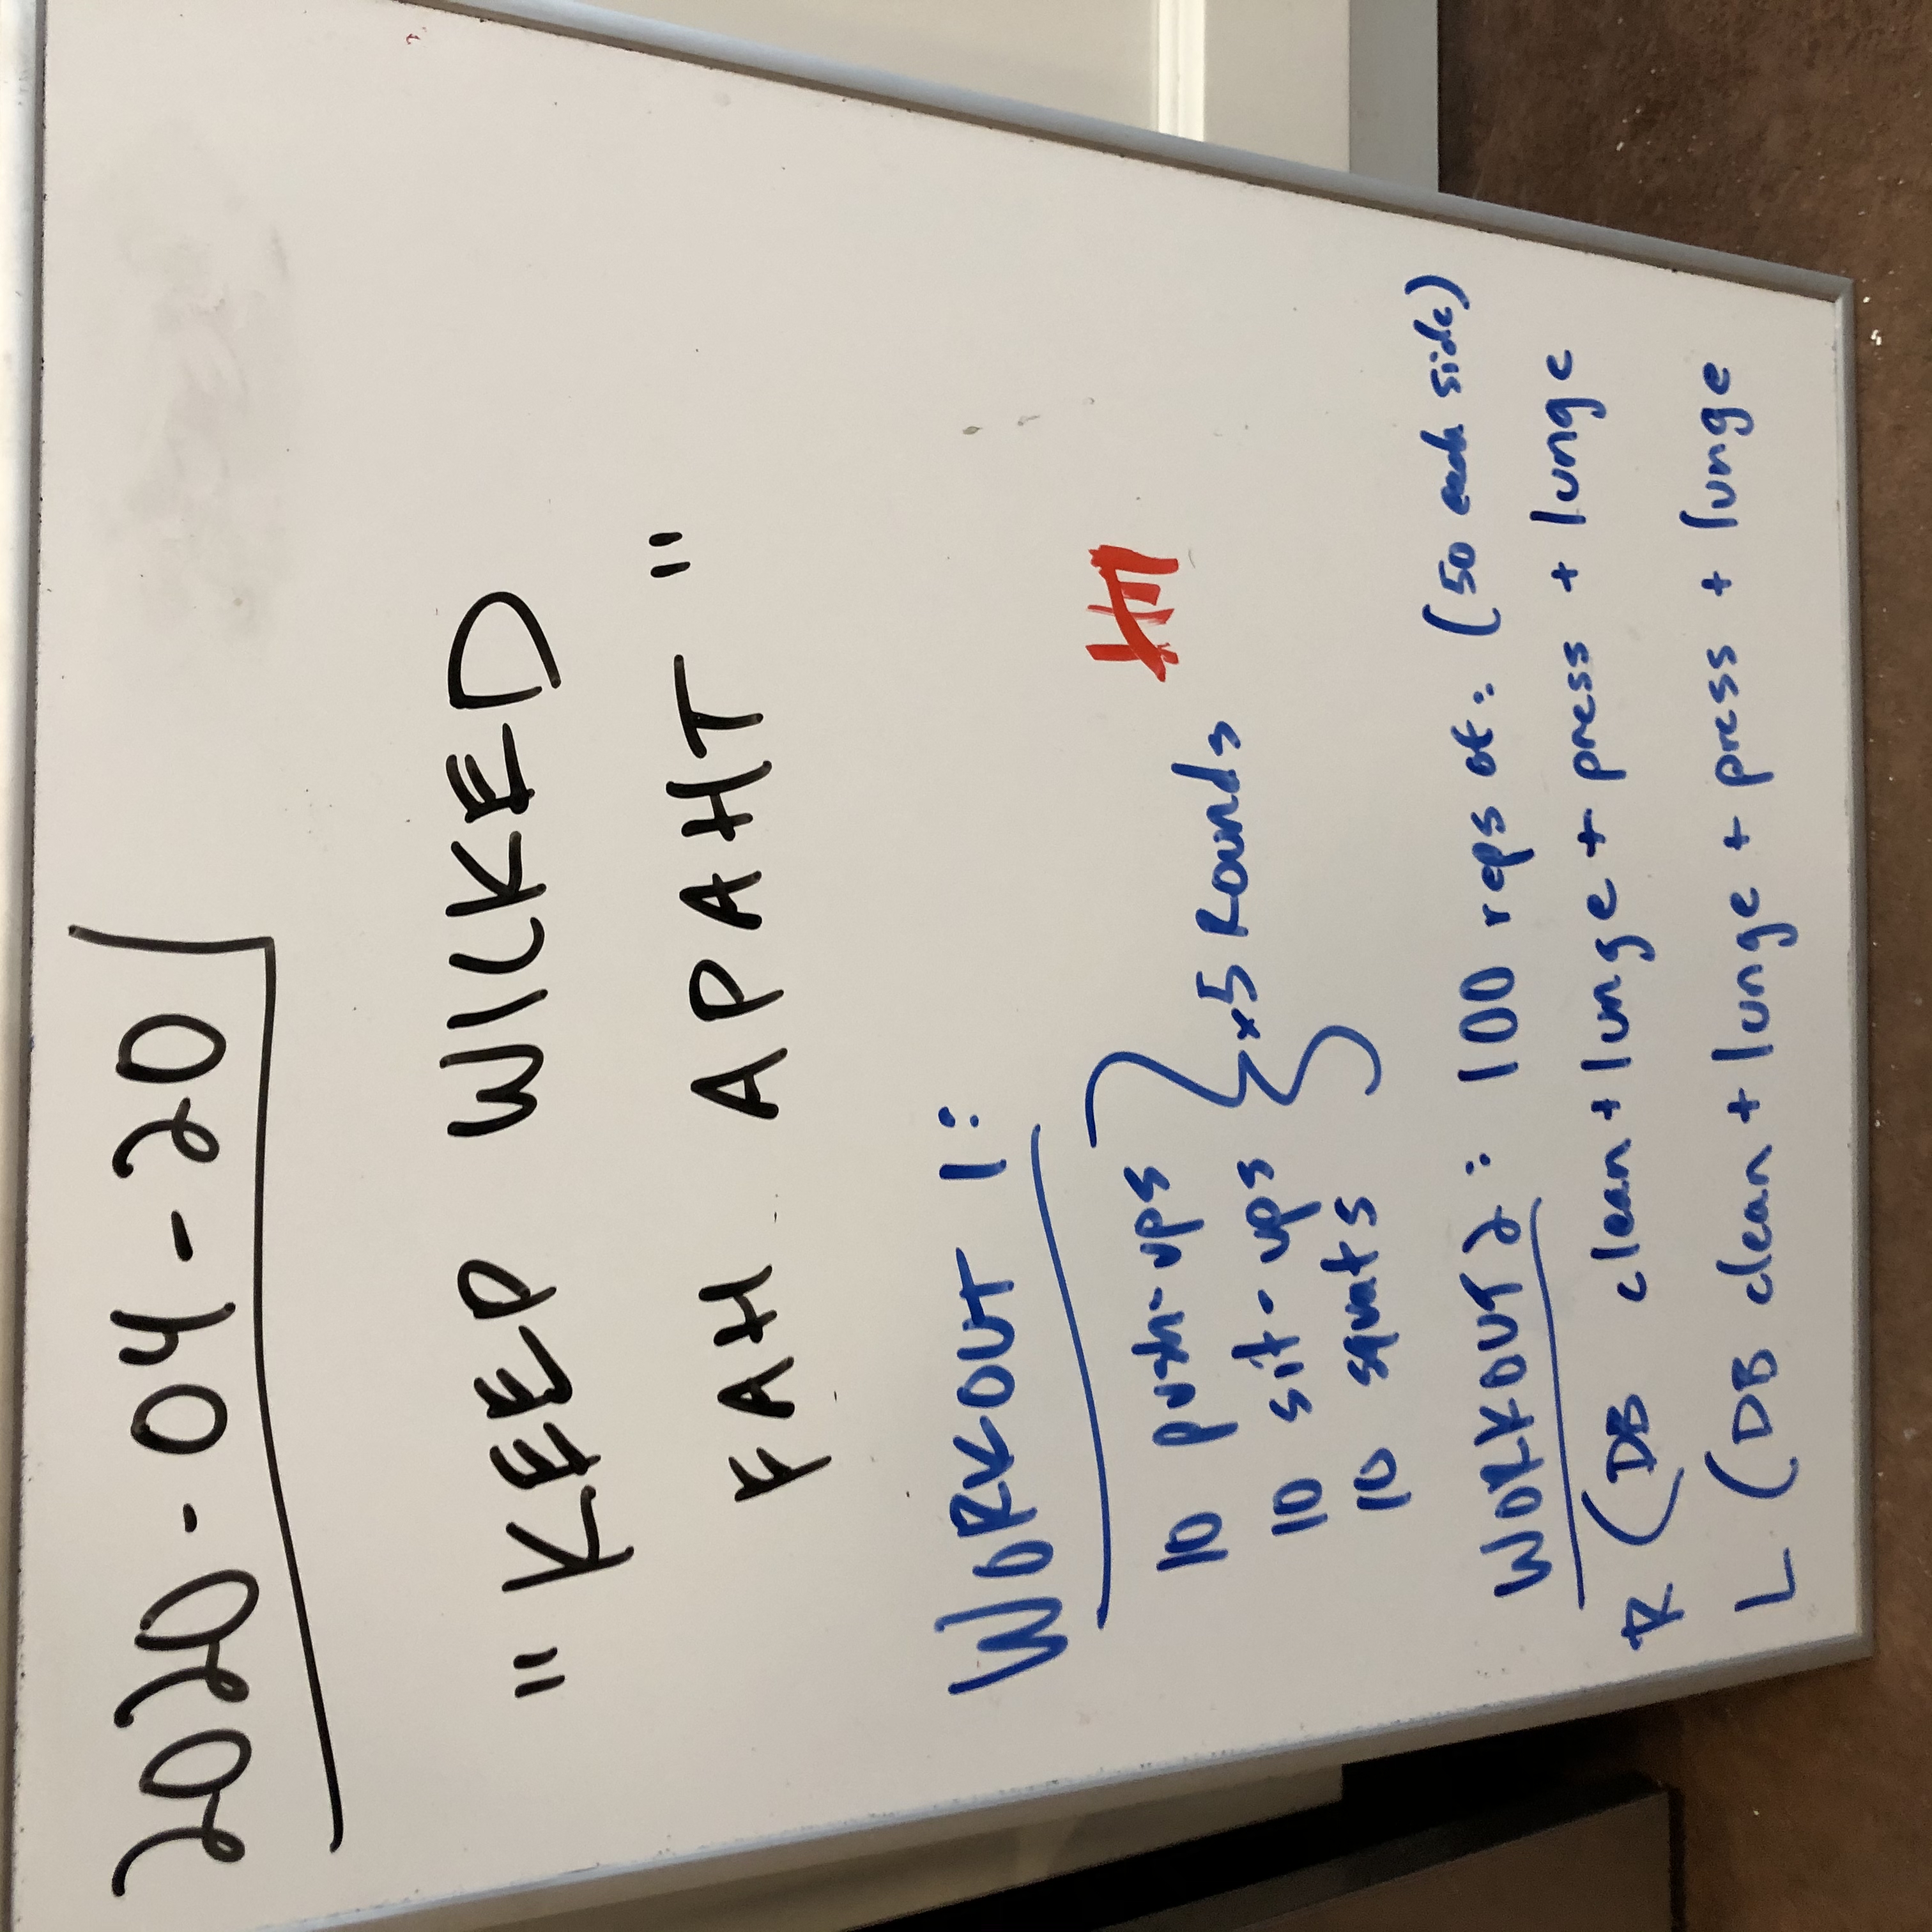 2020-04-20
"KEEP WICKED
FAH APAHT"
WORKOUT 1:
10 push-ups
10 sit-ups
10 squats
x5 Rounds
WORKOUT 2: 100 reps of: (50 each side)
R (DB clean + lunge + press + lunge
L (DB clean + lunge + press + lunge